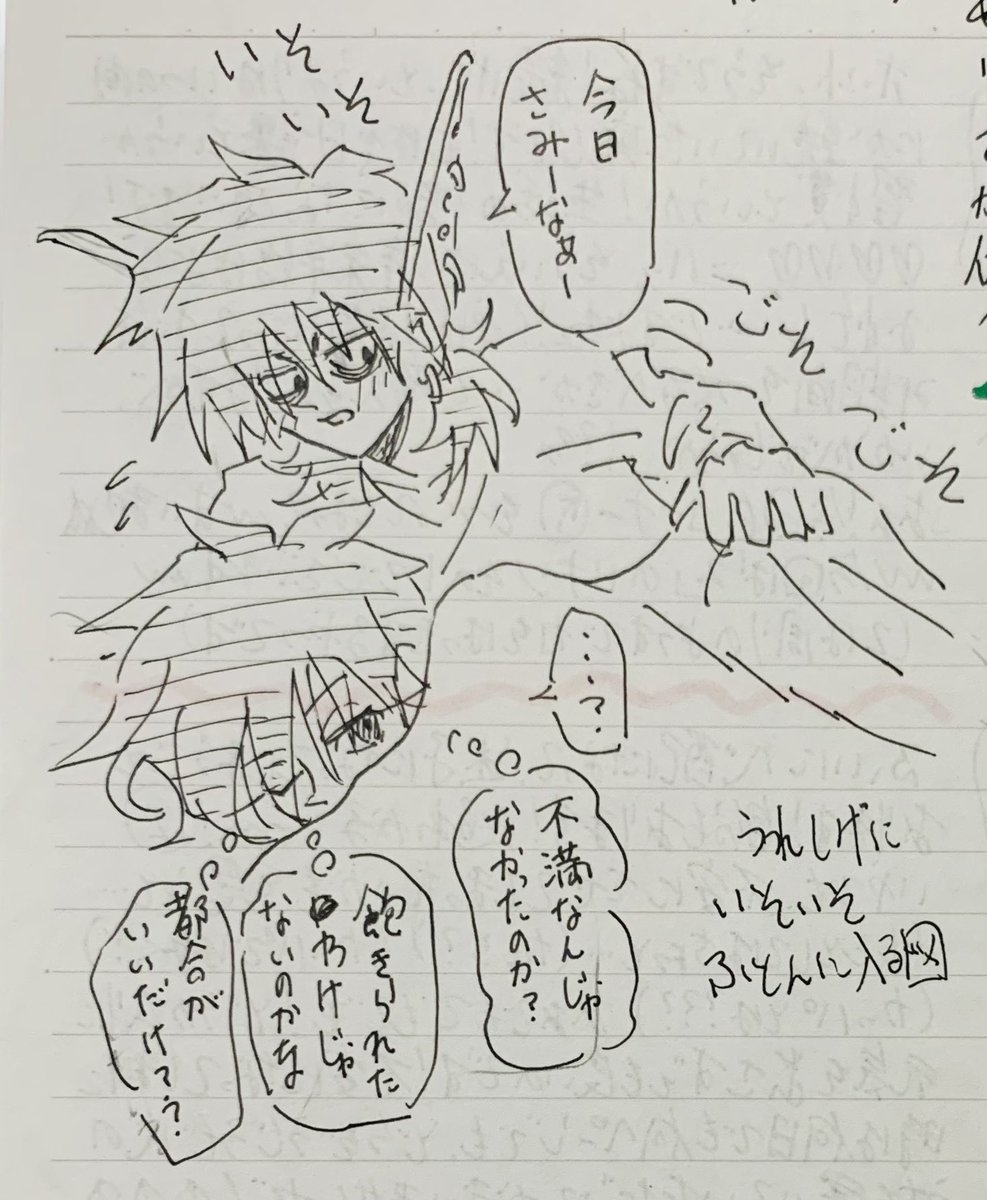 いそ
いそ
今日
さみーなぁー
ごそ
ごそ
…?
不満なんじゃ
なかったのか?
飽きられた
わけじゃ
ないのかな
都合が
いいだけ?う?
うれしげに
いそいそ
ふとんに入る図